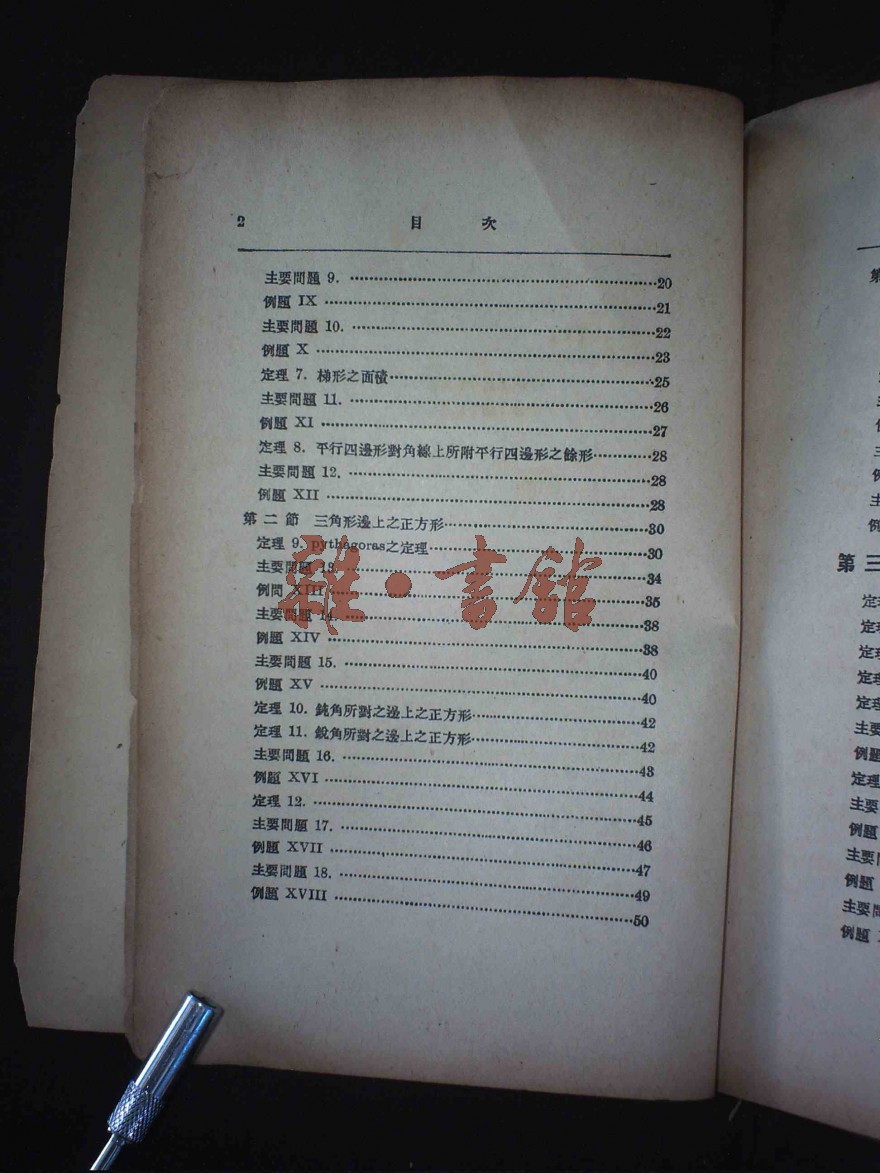 2 目 次
主要問題 9. ……20
例題 IX ……21
主要問題 10. ……22
例題 X ……23
定理 7. 梯形之面積……25
主要問題 11. ……26
例題 XI ……27
定理 8. 平行四邊形對角線上所附平行四邊形之餘形……28
主要問題 12. ……28
例題 XII ……28
第二節 三角形邊上之正方形……30
定理 9. pythagoras之定理……30
主要問題 13. ……34
例問 XIII ……35
主要問題 14. ……38
例題 XIV ……38
主要問題 15. ……40
例題 XV ……40
定理 10. 鈍角所對之邊上之正方形……42
定理 11. 銳角所對之邊上之正方形……42
主要問題 16. ……43
例題 XVI ……44
定理 12. ……45
主要問題 17. ……46
例題 XVII ……47
主要問題 18. ……49
例題 XVIII ……50
雜·書館
第
主
例
主
例
主
例
第三
定理
定理
定理
定理
定理
主要
例題
定理
主要
例題
主要
例題
主要
例題